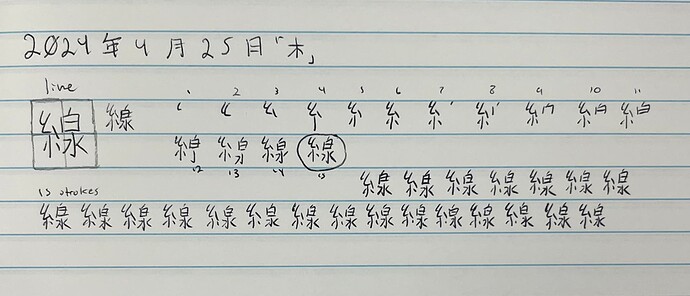 2024年4月25日「木」
line 1 2 3 4 5 6 7 8 9 10 11
線 線
線
12 13 14 15
線 線 線 線 線 線 線
15 strokes
線 線 線 線 線 線 線 線 線 線 線 線 線 線 線